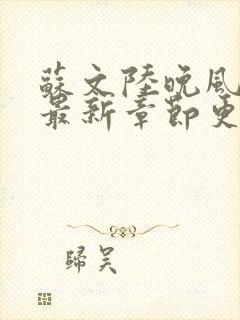 蘇文陸晚風
最新章節更
歸吴